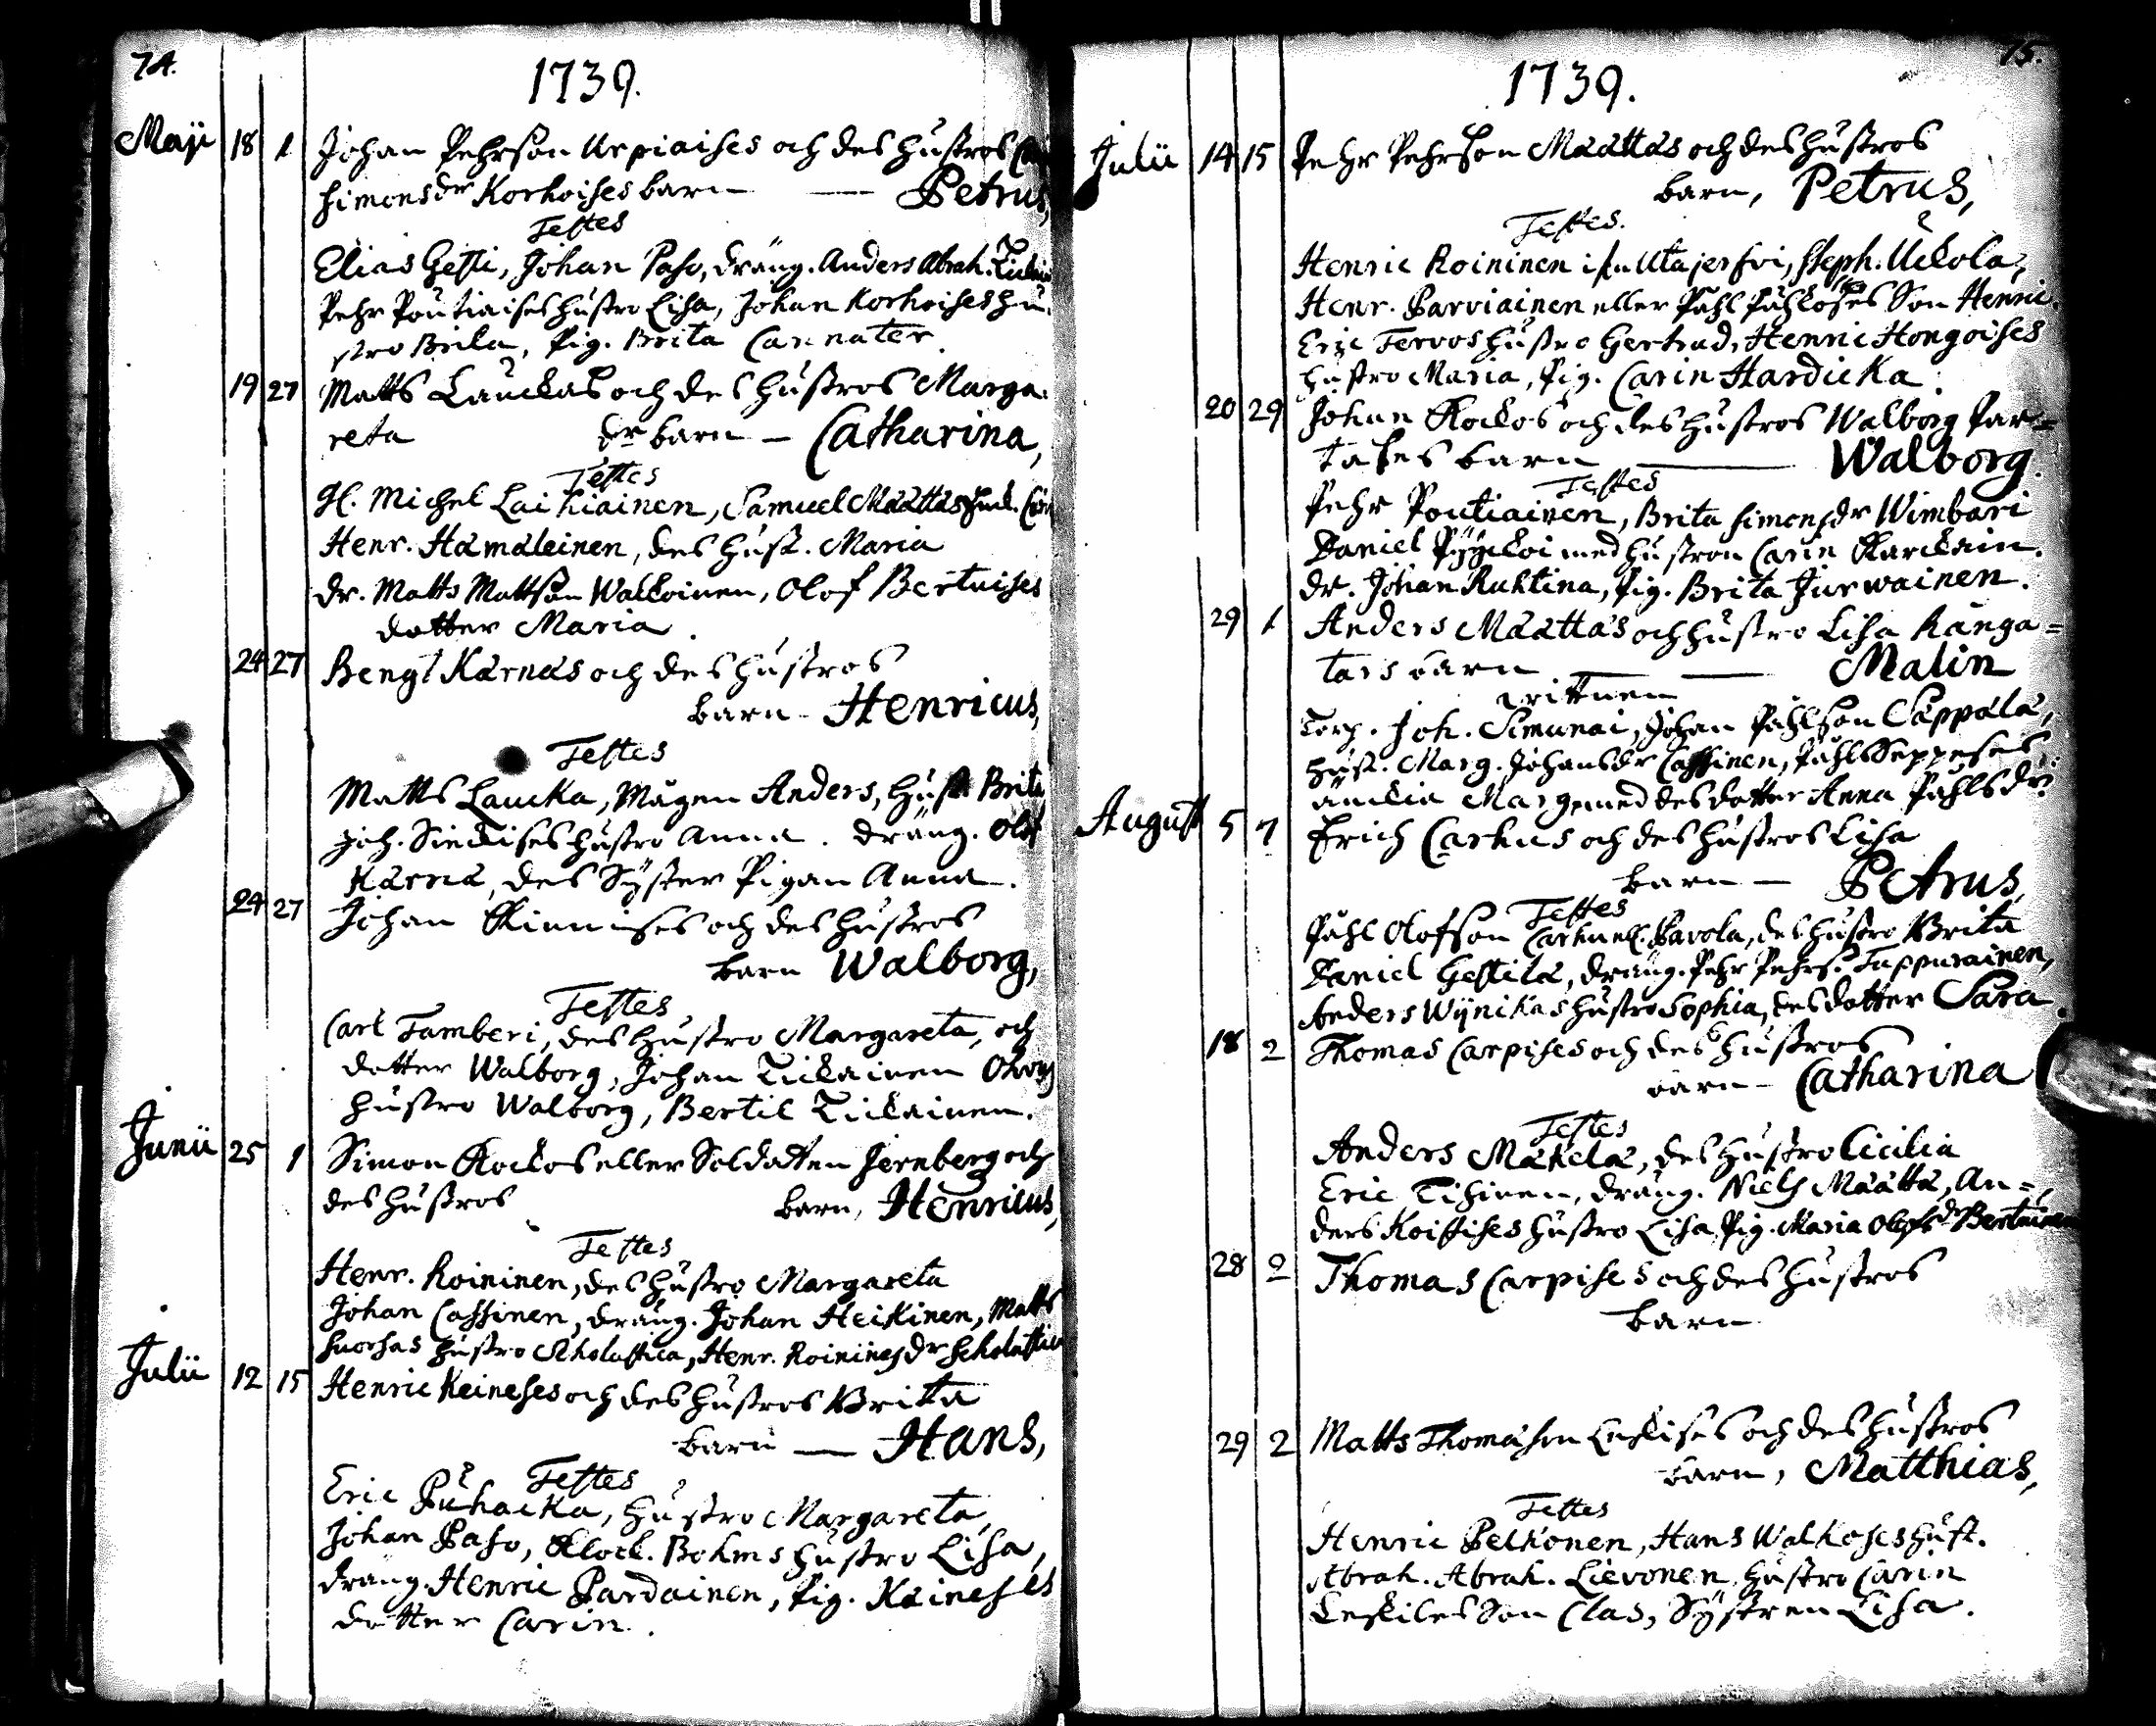 74.
1739.
Maji 18 1 Johan Pehrson Urpiaises och des hustros
Simonsdr Korhoises barn — Petrus,
Testes
Elias Hesti, Johan Paso, dräng. Anders Abrah.
Pehr Poutiaises hustro Lisa, Johan Korhoises hu-
stro Brita, Pig. Brita Cannater.
19 27 Matts Lauckas och des hustros Marga-
reta dr barn — Catharina,
Testes
H. Michel Laikiainen, Samuel Määttäs
Henr. Hämäleinen, des hust. Maria
dr. Matts Mattson Walkoinen, Olof Bertuises
dotter Maria.
24 27 Bengt Kärnäs och des hustros
barn - Henricus,
Testes
Matts Laucka, Mågen Anders, Hust. Brita
Joh. Sinckises hustro Anna. dräng. Olof
Kärnä, des Syster Pigan Anna.
24 27 Johan Kinnises och des hustros
barn Walborg,
Testes
Carl Tamberi, des hustro Margareta, och
dotter Walborg, Johan Tickainen
hustro Walborg, Bertil Tickainen.
Junii 25 1 Simon Kockos eller Soldatten Jernberg och
des hustros barn, Henricus,
Testes
Henr. Roininen, des hustro Margareta
Johan Cassinen, dräng. Johan Heikinen, Matts
hustro Scholastica, Henr. Roinines dr Scholastica
Julii 12 15 Henric Keineses och des hustros Brita
barn — Hans,
Testes
Eric Puhacka, hustro Margareta,
Johan Paso, Klock. Bohms hustro Lisa,
dräng. Henric Pardainen, Pig. Keineses
dotter Carin.
75.
1739.
Julii 14 15 Pehr Pehrson Määttäs och des hustros
barn, Petrus,
Testes.
Henric Roininen ifrån Utajerfvi, Steph. Uckola,
Henr. Parviainen eller Påhl Påhloses Son Henric
Eric Tervos hustro Gertrud, Henric Hongoises
hustro Maria, Pig. Carin Hardicka.
20 29 Johan Kockos och des hustros Walborg Par=
tases barn — Walborg.
Testes
Pehr Poutiainen, Brita Simonsdr Wimbari
Daniel Pyyckoi med hustron Carin
dr. Johan Ruhtina, Pig. Brita Jurwainen.
29 1 Anders Määttäs och hustro Lisa Kånga=
tars barn — Malin
Wittnen
Torp. Joh. Simunai, Johan Påhlson Cäppälä,
Hust. Marg. Johansdr Cassinen, Påhl Seppeses
änckia Marg. med des dotter Anna Påhlsdr.
August 5 7 Erich Carhus och des hustros Lisa
barn — Petrus,
Testes
Påhl Olofson Carhu ell. Pavola, des hustro Brita
Daniel Hestilä, dräng. Pehr Pehrs. Tappurainen,
Anders Wynikas hustro Sophia, des dotter Sara.
18 2 Thomas Carpises och des hustros
barn — Catharina
Testes
Anders Mäkelä, des hustro Cicilia
Eric Tihinen, dräng. Niels Määttä, An=
ders Koistises hustro Lisa, Pig. Maria Olofsdr Bertuinen
28 2 Thomas Carpises och des hustros
barn
29 2 Matts Thomasson Leskises och des hustros
barn, Matthias,
Testes
Henric Pelkonen, Hans Walkoses hust.
Abrah. Abrah. Lievonen, hustro Carin
Leskises Son Clas, Systren Lisa.